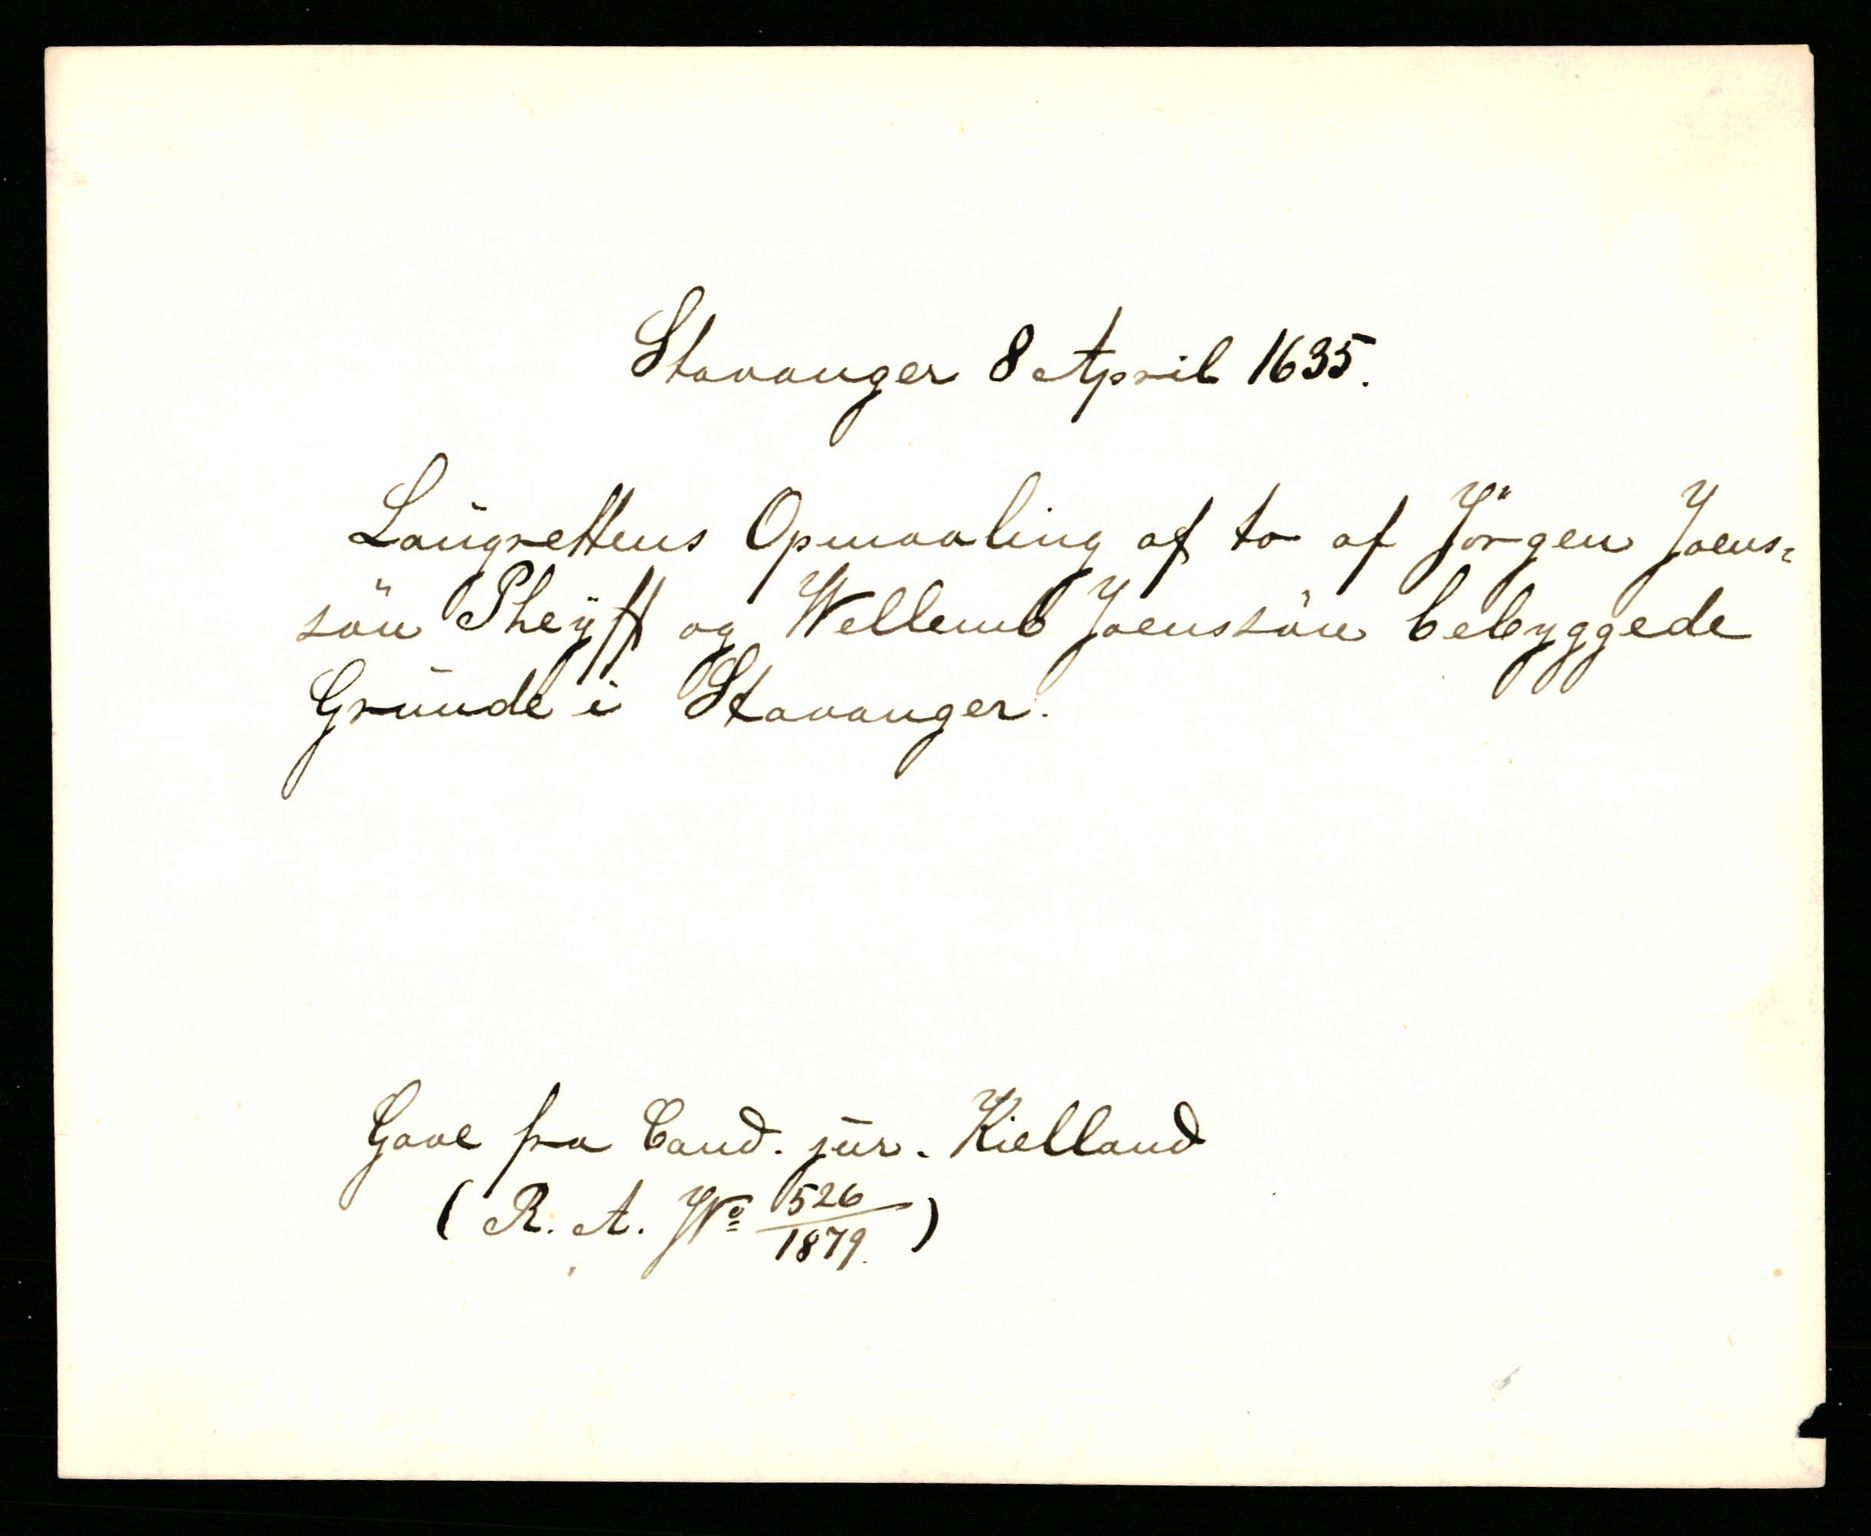 Stavanger 8 April 1635.
Laugrettens Opmaaling af to af Jörgen Joens=
sön Pheyff og Wellemb Joenssön bebyggede
Grunde i Stavanger.
Gave fra Cand. jur. Kielland
( R. A. No 526/1879. )